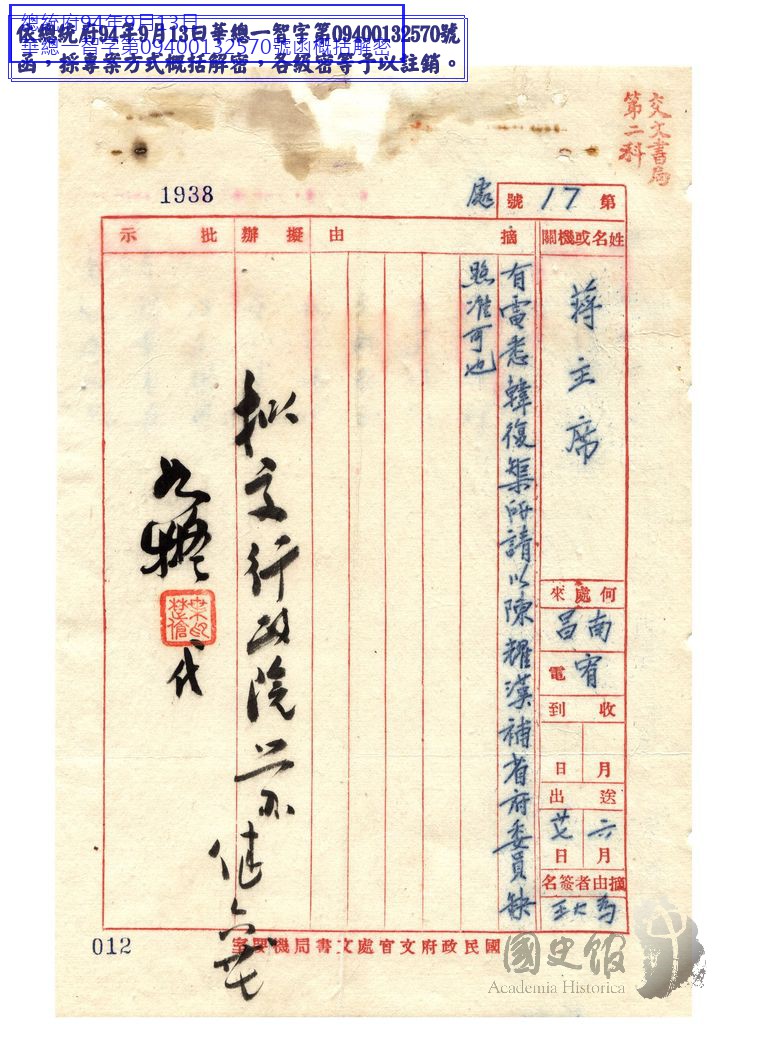 總統府94年9月13日
華總一智字第09400132570號函概括解密
依總統府94年9月13日華總一智字第09400132570號
函，採專案方式概括解密，各級密等予以註銷。
交文書局
第二科
1938
處
第17號
姓名或機關
蔣主席
何處來
南昌
宥電
收到
月
日
送出
六月
廿七日
摘由者簽名
摘由
有電悉韓復榘所請以陳耀漢補省府委員缺
照准可也
擬辦
擬交行政院
六廿七
批示
代
國民政府文官處文書局機要室
012
國史館
Academia Historica